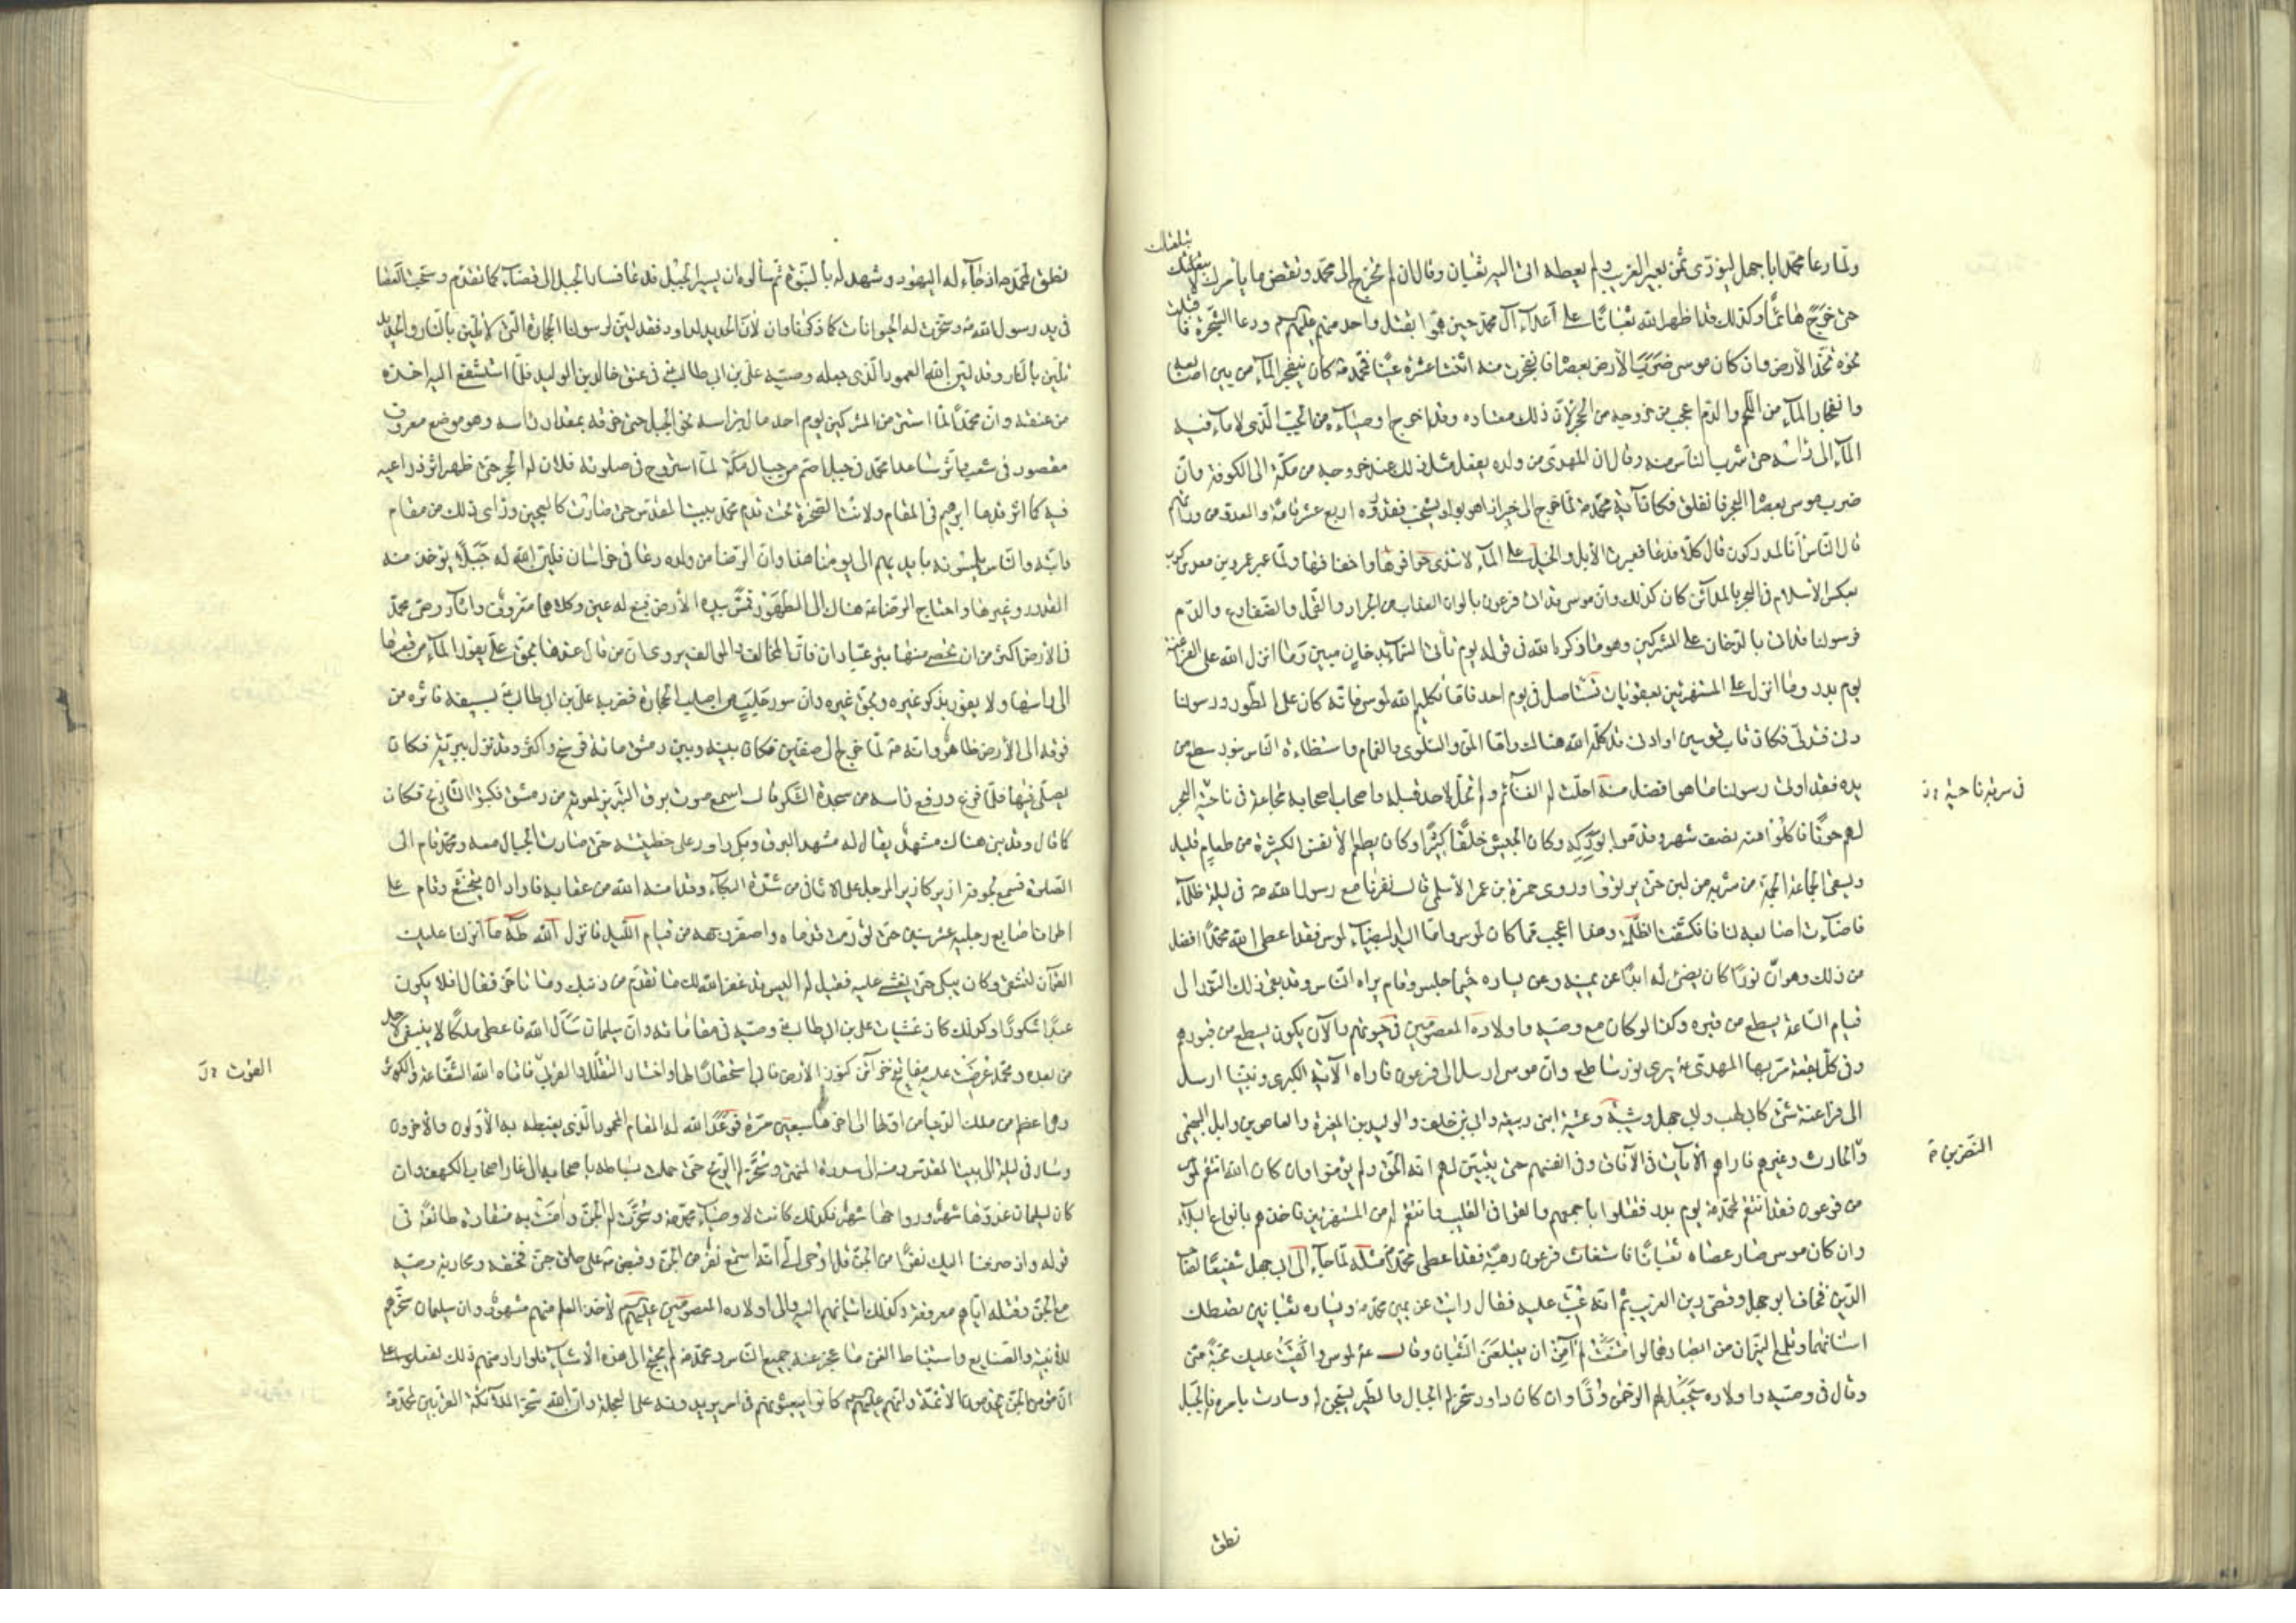 ولما دعا محمد ابا جهل ليؤدى ثمن بعير الغريب ولم يعطه اتى اليه ثعبان وقال ان لم تخرج الى محمد وتقض ما يأمرك
يبلعنك
حتى خرج هائما وكذلك قد اظهر الله ثعبانا على اعداء آل محمد حين هموا بقتل واحد منهم عليهم ودعا الشجرة فاقبلت
نحوه تخد الأرض وان كان موسى ضرب الأرض بعصاه فانفجرت منه اثنتا عشرة عينا فمحمد ص كان ينفجر الماء من بين اصابعه
وانفجار الماء من اللحم والدم اعجب من خروجه من الحجر لأن ذلك معتاده وقد اخرج اوصياءه من الجب الذى لا ماء فيه
الماء الى رأسه حتى شرب الناس منه وقال ان المهدى من ولده يفعل مثل ذلك عند خروجه من مكة الى الكوفة وان
ضرب موسى بعصاه البحر فانفلق فكان آية محمد ص لما خرج الى خيبر اذا هو بواد يشخب فقدروه اربع عشر قامة والعدو من ورائهم
قال الناس انا لمدركون قال كلا فدعا فعبرت الأبل والخيل على الماء لا تندى حوافرها واخفافها ولما عبر عمرو بن معدى كرب
بعسكر الاسلام فى البحر بالمدائن كان كذلك وان موسى قد اتى فرعون بالوان العذاب من الجراد والقمل والضفادع والدم
فرسولنا قد اتى بالدخان على المشركين وهو ما ذكره الله فى قوله يوم تأتى السماء بدخان مبين وما انزل الله على الفراعنة
يوم بدر وما انزل على المستهزئين بعقوبات تستاصل فى يوم احد فاما تكليم الله لموسى فانه كان على الطور ورسولنا
دنى فتدلى فكان قاب قوسين او ادنى قد كلمه الله هناك واما المن والسلوى والغمام واستضاءة الناس بنور سطع من
يده فقد اوتى رسولنا ما هو افضل منه احلت له الغنائم ولم تحل لاحد قبله واصاب اصحابه مجاعة فى ناحية البحر
فى سرية ناحية
لهم حوتا فاكلوا منه نصف شهر وقدموا بودكه وكان الجيش خلقا كثيرا وكان يطعم الأنفس الكثيرة من طعام قليل
ويسقى الجماعة الجمة من شربة من لبن حتى يرتووا وروى حمزة بن عمر الأسلمى قال نفرنا مع رسول الله ص فى ليلة ظلماء
فاضاءت اصابعه لنا فانكشفت الظلمة وهذا اعجب مما كان لموسى واما اليد البيضاء لموسى فقد اعطى الله محمدا افضل
من ذلك وهو ان نورا كان يضئ له ابدا عن يمينه وعن يساره حيثما جلس وقام يراه الناس وقد بقى ذلك النور الى
قيام الساعة يسطع من قبره وكذا لو كان مع وصيه واولاده المعصومين فى حيوتهم والآن يكون يسطع من قبورهم
وفى كل بقعة مر بها المهدى ع يرى نور ساطع وان موسى ارسل الى فرعون فاراه الآية الكبرى ونبينا ارسل
الى فراعنة شتى كابى لهب وابى جهل وشيبة وعتبة ابنى ربيعة وابى بن خلف والوليد بن المغيرة والعاص بن وايل السهمى
والحارث وغيرهم فاراهم الآيات فى الآفاق وفى انفسهم حتى يتبين لهم انه الحق ولم يؤمنوا وان كان الله انتقم لموسى
النضر بن
من فرعون فقد انتقم لمحمد ص يوم بدر فقتلوا باجمعهم والقوا فى القليب وانتقم له من المستهزئين فاخذهم بانواع البلاء
وان كان موسى صار عصاه ثعبانا فاستغاث فرعون رهبة فقد اعطى محمد مثله لما جاء الى ابى جهل شفيعا لصاحب
الدين فخاف ابو جهل وقضى دين الغريب ثم انه عتب عليه فقال رأيت عن يمين محمد ص ويساره ثعبانين تصطك
اسنانهما وتلمع النيران من ابصارهما لو امتنعت لم آمن ان يبتلعنى الثعبان وقال عز لموسى والقيت عليك محبة منى
وقال فى وصيه واولاده سيجعل لهم الرحمن ودا وان كان داود سخر له الجبال والطير يسبحن له وسارت بامره فالجبل
نطق
نطق لمحمد ص اذ جاء له اليهود وشهد له بالنبوة ثم سألوه ان يسير الجبل فدعا فسار الجبل الى فضاء كما تقدم وسبحت الحصا
فى يد رسول الله ص وسخرت له الحيوانات كما ذكرنا وان لأن الحديد لداود فقد لين لرسولنا الحجارة التى لا تلين بالنار والحديد
تلين بالنار وقد لين الله العمود الذى جعله وصيه على بن ابى طالب ع فى عنق خالد بن الوليد فلما استشفع اليه اخذه
من عنقه وان محمدا لما استتر من المشركين يوم احد مال براسه نحو الجبل حتى خرقه بمقدار راسه وهو موضع معروف
مقصود فى شعب واثر ساعدا محمد فى جبل اصم من جبال مكة لما استروح فى صلوته فلان له الحجر حتى ظهر اثر ذراعيه
فيه كما اثر قدما ابرهيم فى المقام ولانت الصخرة تحت قدم محمد ببيت المقدس حتى صارت كالعجين ورأى ذلك من مقام
دابته والناس يلمسونه بايديهم الى يومنا هذا وان الرضا من ولده دعا فى خراسان فلين الله له جبلا يؤخذ منه
القدور وغيرها واحتاج الرضا ع هناك الى الطهور فمس بيده الأرض فنبع له عين وكلاهما معروف وآثار وصى محمد
فى الأرض اكثر من ان تحصى منها بئر عبادان فان المخالف والمؤالف يروى ان من قال عندها بحق على يفور الماء من قعرها
الى راسها ولا يفور بذكر غيره وبحق غيره وان سور حلب من اصلب الحجارة فضربه على بن ابى طالب ع بسيفه فاثره من
فوقه الى الأرض ظاهر وانه ص لما خرج الى صفين فكان بينه وبين دمشق مائة فرسخ واكثر وقد نزل ببرية فكان
يصلى فيها فلما فرغ ورفع راسه من سجدة الشكر قال اسمع صوت بوق التبريز لمعوية من دمشق فكتبوا التاريخ فكان
كما قال وقد بنى هناك مشهد يقال له مشهد البوق وبكى داود على خطيئته حتى صارت الجبال معه ومحمد قام الى
الصلوة فسمع لجوفه ازيز كازيز المرجل على الاثافى من شدة البكاء وقد امنه الله من عقابه فاراد ان يتخشع وقام على
اطراف اصابع رجليه عشر سنين حتى تورمت قدماه واصفر وجهه من قيام الليل فانزل الله طه ما انزلنا عليك
القرآن لتشقى وكان يبكى حتى يغشى عليه فقيل له اليس قد غفر الله لك ما تقدم من ذنبك وما تأخر فقال افلا يكون
عبدا شكورا وكذلك كان غشيات على بن ابى طالب ع وصيه فى مقاماته وان سليمان سأل الله فاعطى ملكا لا ينبغى لاحد
من بعده ومحمد عرضت عليه مفاتيح خزآئن كنوز الأرض فابى استحقارا لها واختار التقلل والقربى فاتاه الله الشفاعة والكوثر
القوت
وهى اعظم من ملك الدنيا من اولها الى اخرها سبعين مرة فوعد الله له المقام المحمود الذى يغبطه به الأولون والآخرون
وسار فى ليلة الى بيت المقدس ومنه الى سدرة المنتهى وسخر له الريح حتى حملت بساطه باصحابه الى غار اصحاب الكهف وان
كان لسليمان غدوها شهر ورواحها شهر فكذلك كانت لاوصياء محمد ص وسخرت له الجن وآمنت به منقادة طائعة فى
قوله واذ صرفنا اليك نفرا من الجن قل اوحى الى انه استمع نفر من الجن وقبض ص على حلق جنى فخنقه ومحاربة وصيه
مع الجن وقتله اياهم معروفة وكذلك اتيانهم اليه والى اولاده المعصومين عليهم السلم لأخذ العلم منهم مشهور وان سليمان سخرهم
للأبنية والصنايع واستنباط القنى ما عجز عنه جميع الناس ومحمد ص لم يحتج الى هذه الأشياء فلو اراد منهم ذلك لفعلوا على
ان مؤمنى الجن يخدمون الأئمة وانهم عليهم السلم كانوا يبعثونهم فى امر يريدونه على العجلة وان الله سخر الملآئكة المقربين لمحمد ص